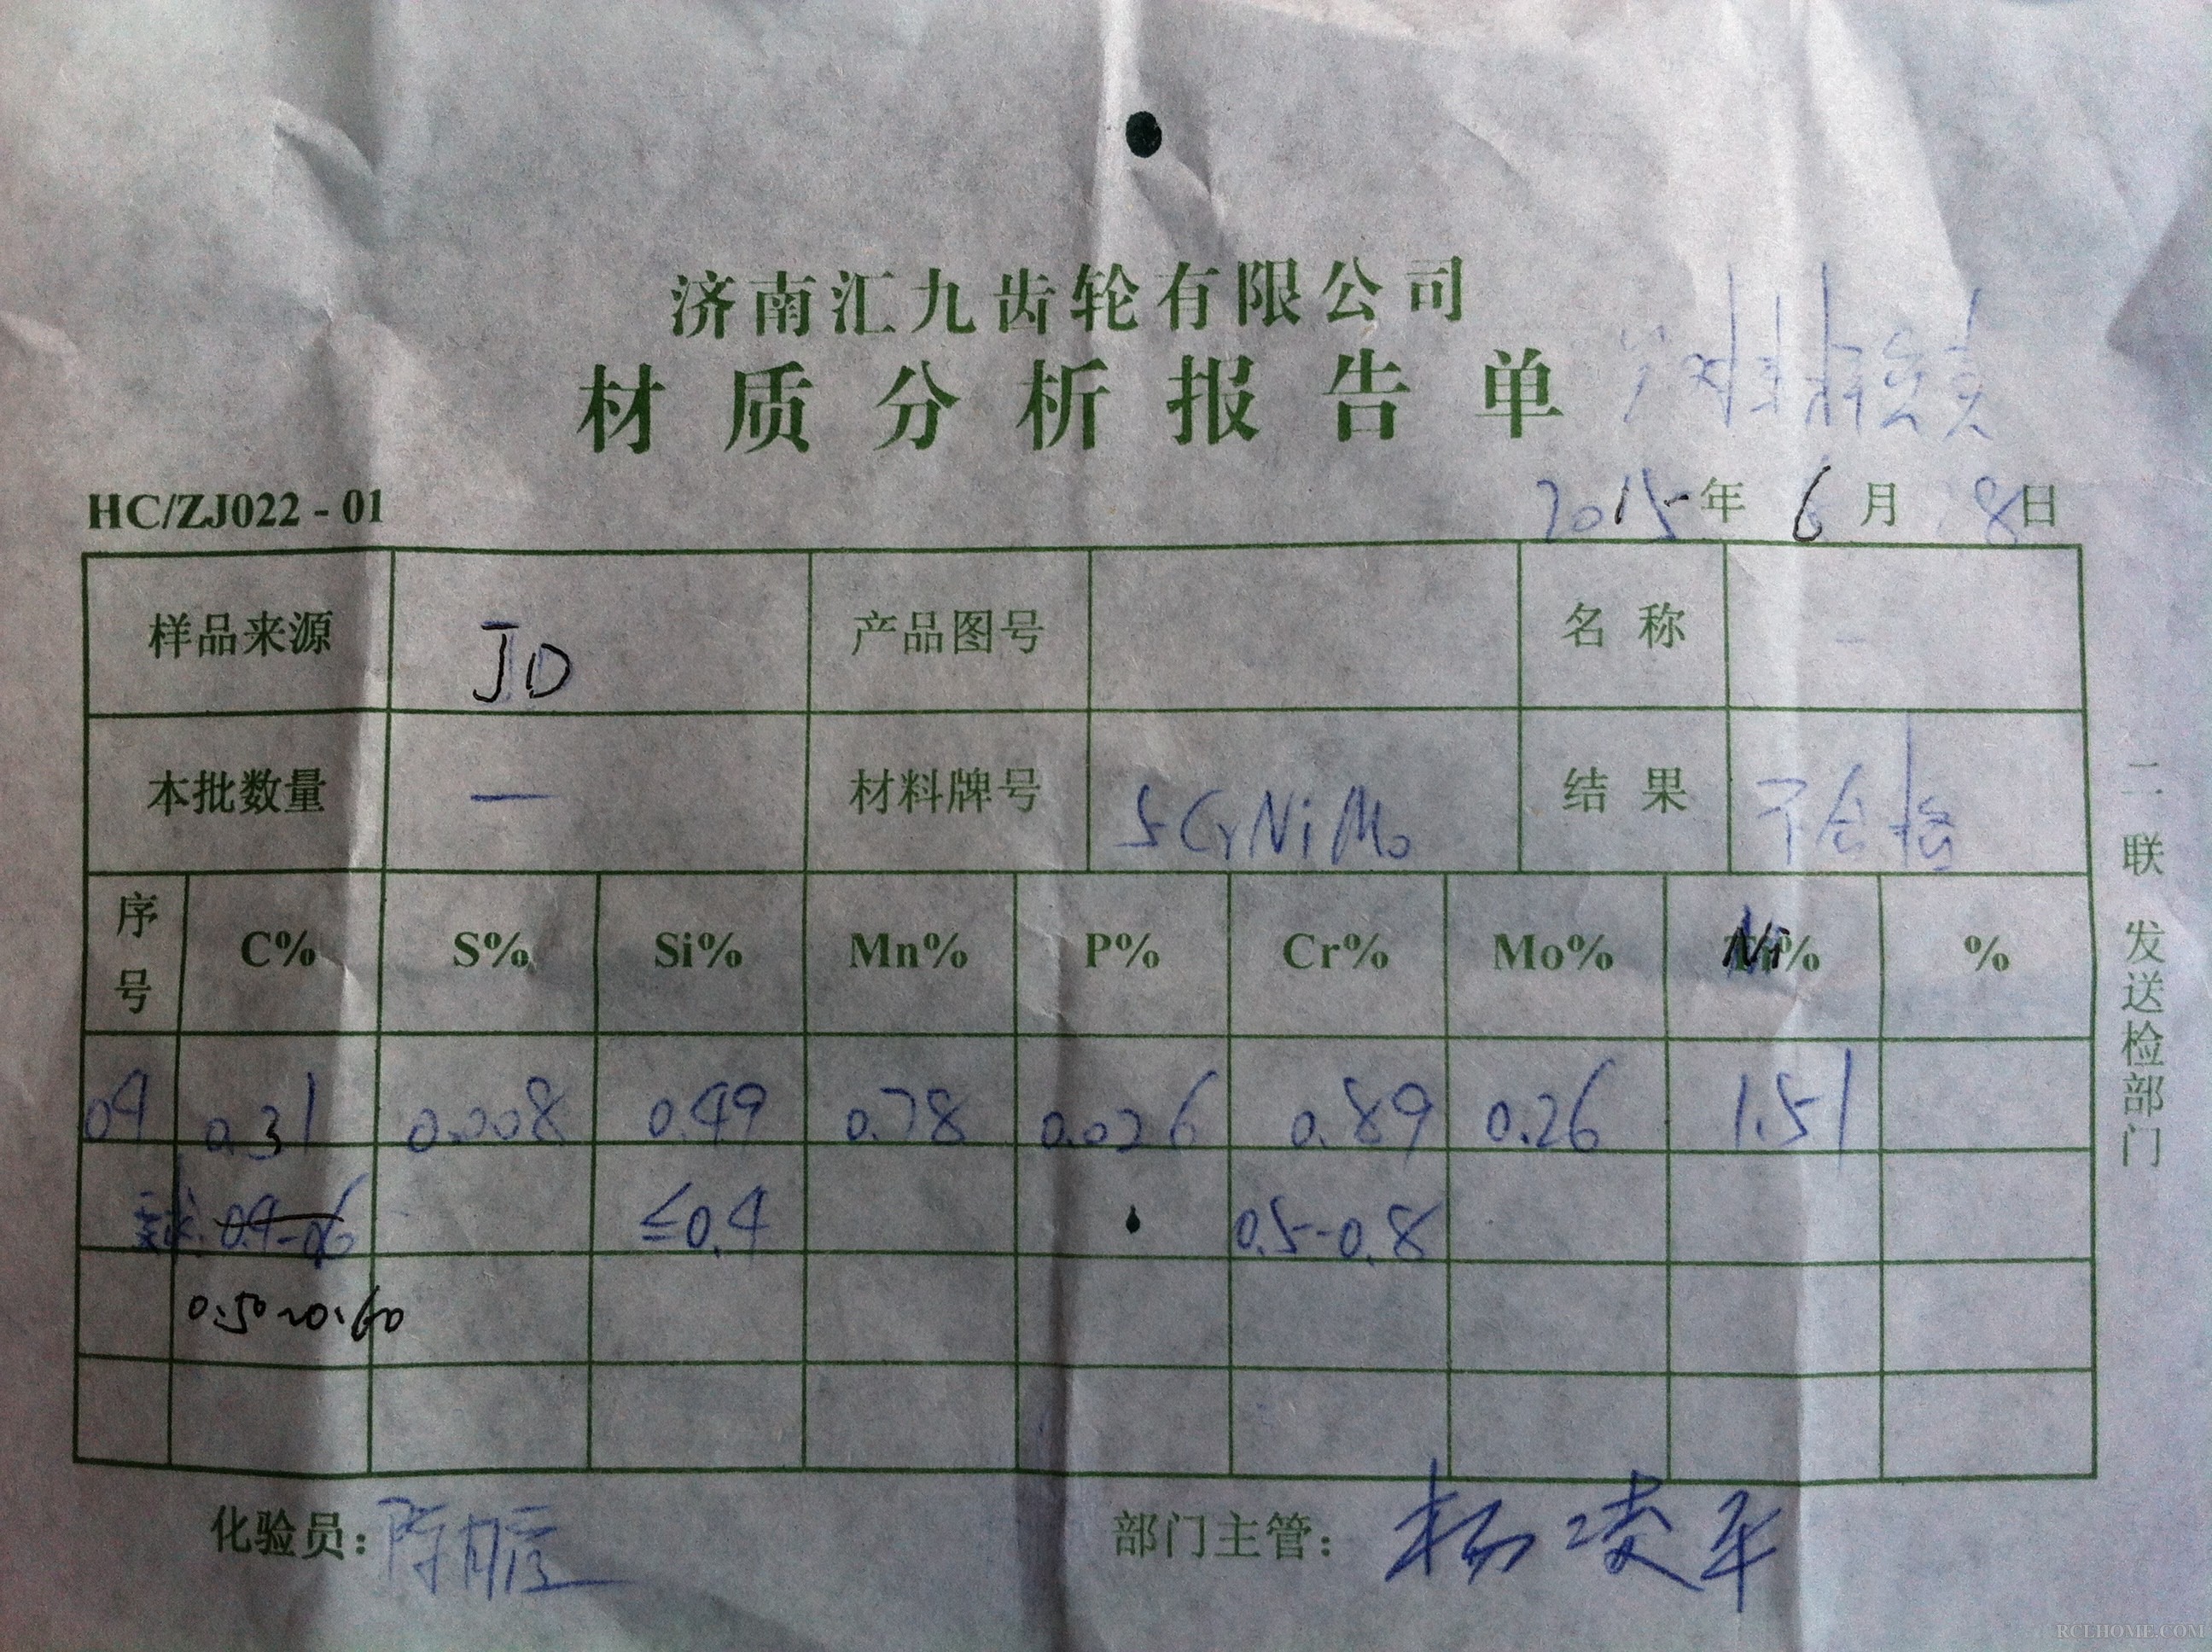 济南汇九齿轮有限公司
材质分析报告单
只对来样负责
HC/ZJ022-01
2015年6月8日
样品来源 JD 产品图号 名称 -
本批数量 — 材料牌号 5CrNiMo 结果 不合格
序号 C% S% Si% Mn% P% Cr% Mo% Ni% %
04 0.31 0.008 0.49 0.78 0.026 0.89 0.26 1.51
要求: 0.4-0.6 ≤0.4 0.5-0.8
0.50~0.60
化验员: 部门主管: 杨凌平
二联 发送检部门
RCLHOME.COM